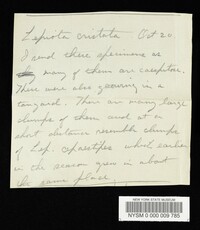 Lepiota cristata Oct 20
I send these specimens as
many of them are caespitose.
There were also growing in a
tan yard. There are many large
clumps of them and at a
short distance resemble clumps
of Lep. caespitosa which earlier
in the season grew in about
the same place
NEW YORK STATE MUSEUM
NYSM 0 000 009 785